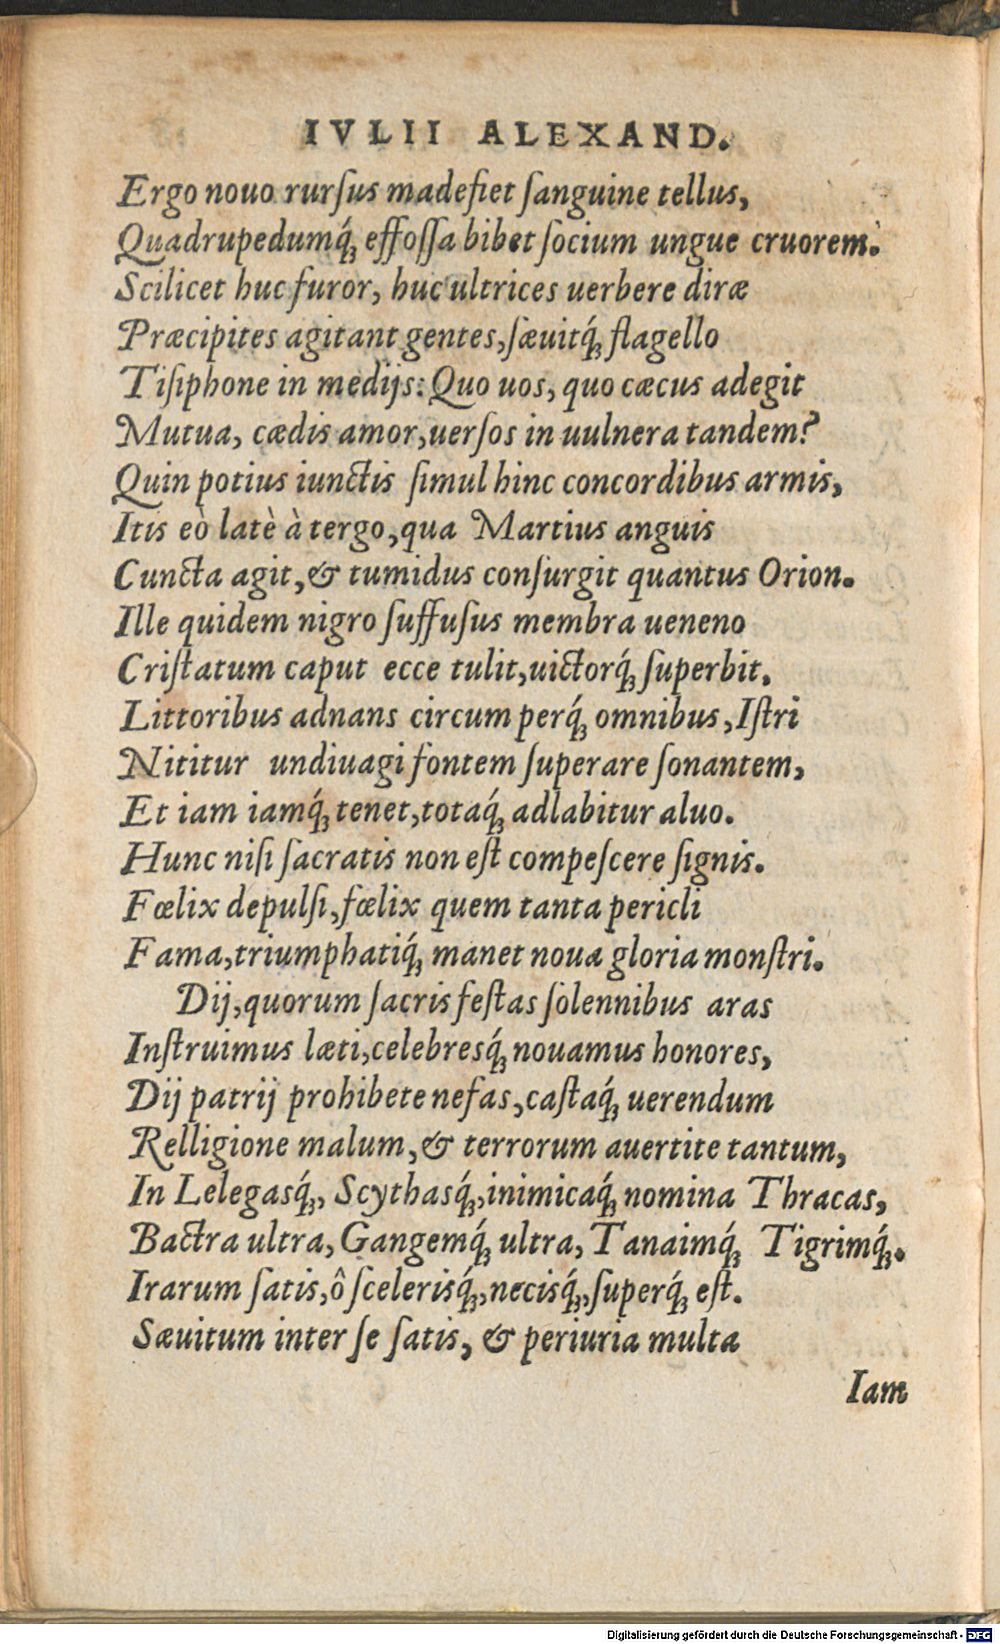 IVLII ALEXAND.
Ergo nouo rurſus madefiet ſanguine tellus,
Quadrupedumq́ꝫ effoſſa bibet ſocium ungue cruorem.
Scilicet huc furor, huc ultrices uerbere diræ
Præcipites agitant gentes, ſæuitq́ꝫ flagello
Tiſiphone in medijs: Quo uos, quo cæcus adegit
Mutua, cædis amor, uerſos in uulnera tandem?
Quin potius iunctis ſimul hinc concordibus armis,
Itis eò latè à tergo, qua Martius anguis
Cuncta agit, & tumidus conſurgit quantus Orion.
Ille quidem nigro ſuffuſus membra ueneno
Criſtatum caput ecce tulit, uictorq́ꝫ ſuperbit.
Littoribus adnans circum perq́ꝫ omnibus, Iſtri
Nititur undiuagi fontem ſuperare ſonantem,
Et iam iamq́ꝫ tenet, totaq́ꝫ adlabitur aluo.
Hunc niſi ſacratis non eſt compeſcere ſignis.
Fœlix depulſi, fœlix quem tanta pericli
Fama, triumphatiq́ꝫ manet noua gloria monſtri.
Dij, quorum ſacris feſtas ſolennibus aras
Inſtruimus læti, celebresq́ꝫ nouamus honores,
Dij patrij prohibete nefas, caſtaq́ꝫ uerendum
Relligione malum, & terrorum auertite tantum,
In Lelegasq́ꝫ, Scythasq́ꝫ, inimicaq́ꝫ nomina Thracas,
Bactra ultra, Gangemq́ꝫ ultra, Tanaimq́ꝫ Tigrimq́ꝫ.
Irarum ſatis, ô ſcelerisq́ꝫ, necisq́ꝫ, ſuperq́ꝫ eſt.
Sæuitum inter ſe ſatis, & periuria multa
Iam
Digitalisierung gefördert durch die Deutsche Forschungsgemeinschaft - DFG